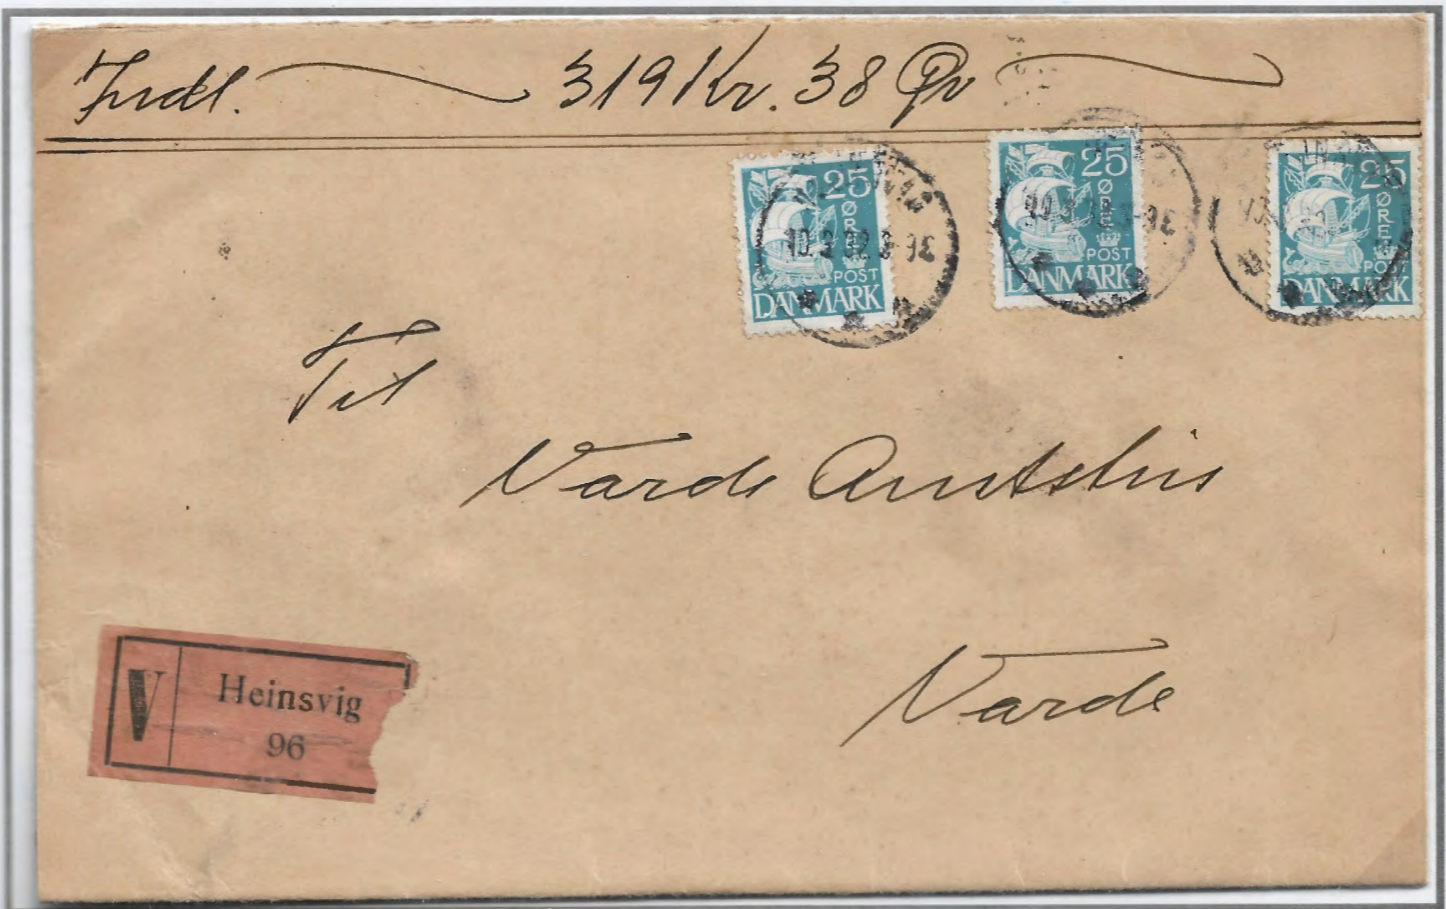 Indl. 319 Kr. 38 Ør
25 ØRE POST DANMARK
25 ØRE POST DANMARK
25 ØRE POST DANMARK
Til
Varde Amtstue
Varde
V Heinsvig
96